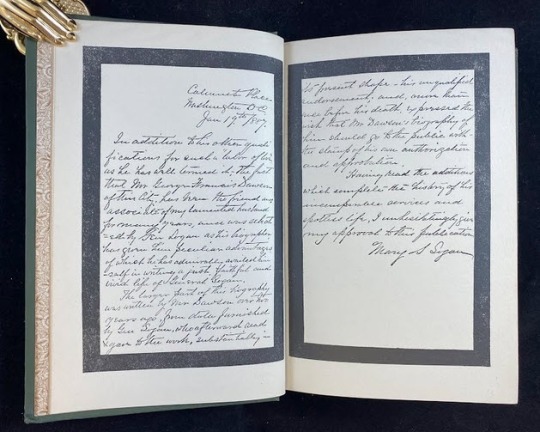 Calumet Place
Washington D.C.
Jan 19th 1887.
In addition to his other quali-
fications for such a labor of love
as he has well termed it, the fact
that Mr George Francis Dawson
of this City, has been the friend and
associate of my lamented husband
for many years, and was
by Gen Logan as his biographer
has given him peculiar advantages
of which he has admirably availed him-
self in writing a just faithful and
vivid life of General Logan.
The larger part of this biography
was written by Mr Dawson over two
years ago, from data furnished
by Gen Logan, who afterward and
again to the work, substantially in
its present shape - his unqualified
endorsement, and, more than
once before his death, expressed the
wish that Mr Dawson's biography of
him should go to the public with
the stamp of his own authorization
and approbation.
Having read the additions
which complete the history of his
services and
spotless life, I unhesitatingly give
my approval to this publication
Mary S Logan